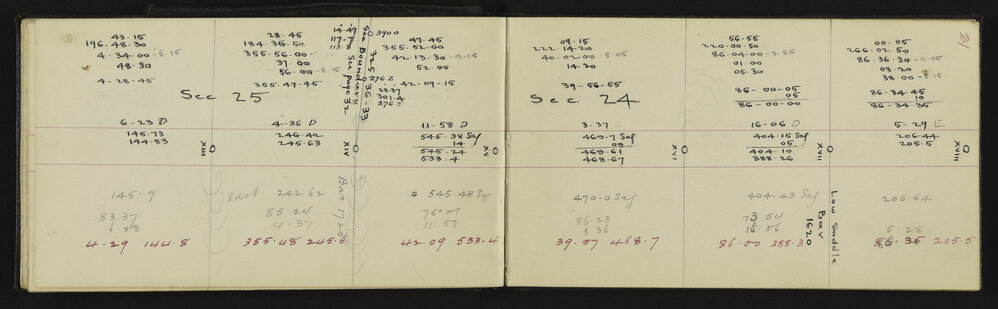 43.15
196.48.30
4.34.00 5.15
48.30
4-28-45
28.45
184.35.50
355.56.00
37.00
56.00 5.15
355.47.45
Sec 25
14.47
117.7
113.
See Boundary
See page 32
325°36-33
3900
276.2
23.37
301.4
276.2
47.45
355.52.00
42.13.30 4.15
52.00
42-09.15
6-23 D
145.73
144.83
XIII
4-36 D
246.42
245.63
XIV
11-58 D
545.38 Sag
14
545.24
533.4
XV
145.9
83.37
6.23
4.29 144.8
last 242.62
85.24
4.37
355.48 245.6
Bar 1725
545.48 Sag
78.01
11.57
42.09 533.4
21
09.15
222.14.20
40.02.00 5.05
14.30
39-56-55
Sec 24
56.55
220.00.50
86.04.00 3.55
01.00
05.30
86-00-05
05
86-00-00
00.05
266.02.50
86.36.30 2.45
03.20
38.00 15
86-34-45
10
86-34-35
3.37 D
469.7 Sag
09
469.61
468.67
XVI
16-06 D
404.15 Sag
05
404.10
388.26
XVII
5-29 E
206.44
205.5
XVIII
470.0 Sag
86.23
3.36
39.57 468.7
404.43 Sag
73.54
16.06
86.00 388.3
Low Saddle
Bar
1620
206.64
5.28
86.35 205.5